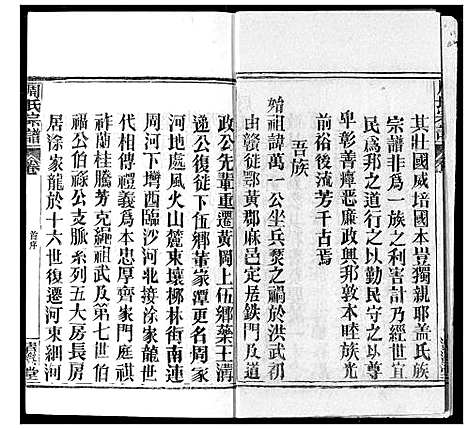 其壯國威培國本豈獨親耶蓋氏族
宗譜非爲一族之利害計乃經世宜
民爲邦之道行之以勤民守之以
卑彰善癉惡廉政興邦敦本睦族光
前裕後流芳千古焉
吾族
始祖諱萬一公坐兵燹之禍於洪武初
由贛徙鄂黃郡麻邑定居鉄門及道
政公先輩重遷黃岡上伍鄉藥王溝
遜公復徙下伍鄉董家潭更名周家
河地處風火山麓東壤梛林街南連
周河下壪西臨沙河北接涂家壠世
代相傳禮義爲本忠厚齊家門庭祺
祚蘭桂騰芳克繩祖武及第七世伯
福公伯祿公支脈系列五大房長房
居涂家龍於十六世復遷河東細河
周氏宗譜
卷
首序
堂